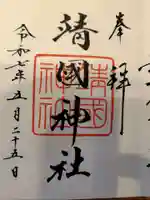 奉拝
靖國神社
令和七年五月二十五日